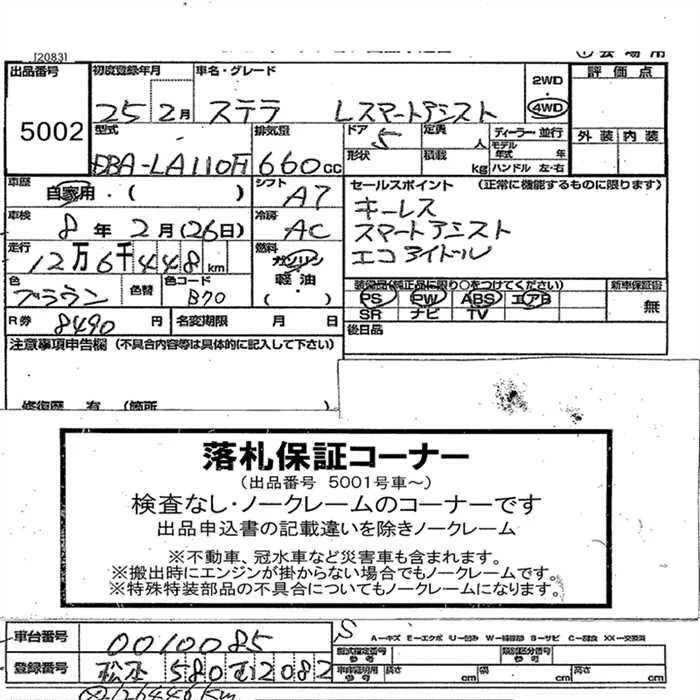 [2083]
出品番号 初度登録年月 車名・グレード 評価点
5002 25 2月 ステラ Lスマートアシスト 2WD 4WD
型式 排気量 ドア 定員 ディーラー・並行 外装 内装
DBA-LA110F 660cc 5 人 モデル年式 年
形状 積載 kg ハンドル 左・右
車歴 自家用・( ) シフト A7 セールスポイント (正常に機能するものに限ります)
車検 8年2月(26日) 冷房 AC キーレス
スマートアシスト
走行 12万6千448km 燃料 ガソリン 軽油・( ) エコアイドル
色 ブラウン 色替 色コード B70 装備品(純正品に限り○をつけてください) 新車保証書
PS PW ABS エアB 無
R券 8490円 名変期限 月 日 SR ナビ TV
注意事項申告欄 (不具合内容等は具体的に記入して下さい) 後日品
修復歴 有 (箇所
落札保証コーナー
(出品番号 5001号車~)
検査なし・ノークレームのコーナーです
出品申込書の記載違いを除きノークレーム
※不動車、冠水車など災害車も含まれます。
※搬出時にエンジンが掛からない場合でもノークレームです。
※特殊特装部品の不具合についてもノークレームになります。
車台番号 0010085 S A-キズ E-エクボ U-凹み W-補修跡 S-サビ C-腐食 XX-交換済
型式指定番号 参考 類別区分番号 参考
登録番号 松本 580 12082 車検証明用 参考 長さ cm 幅 cm 高さ cm